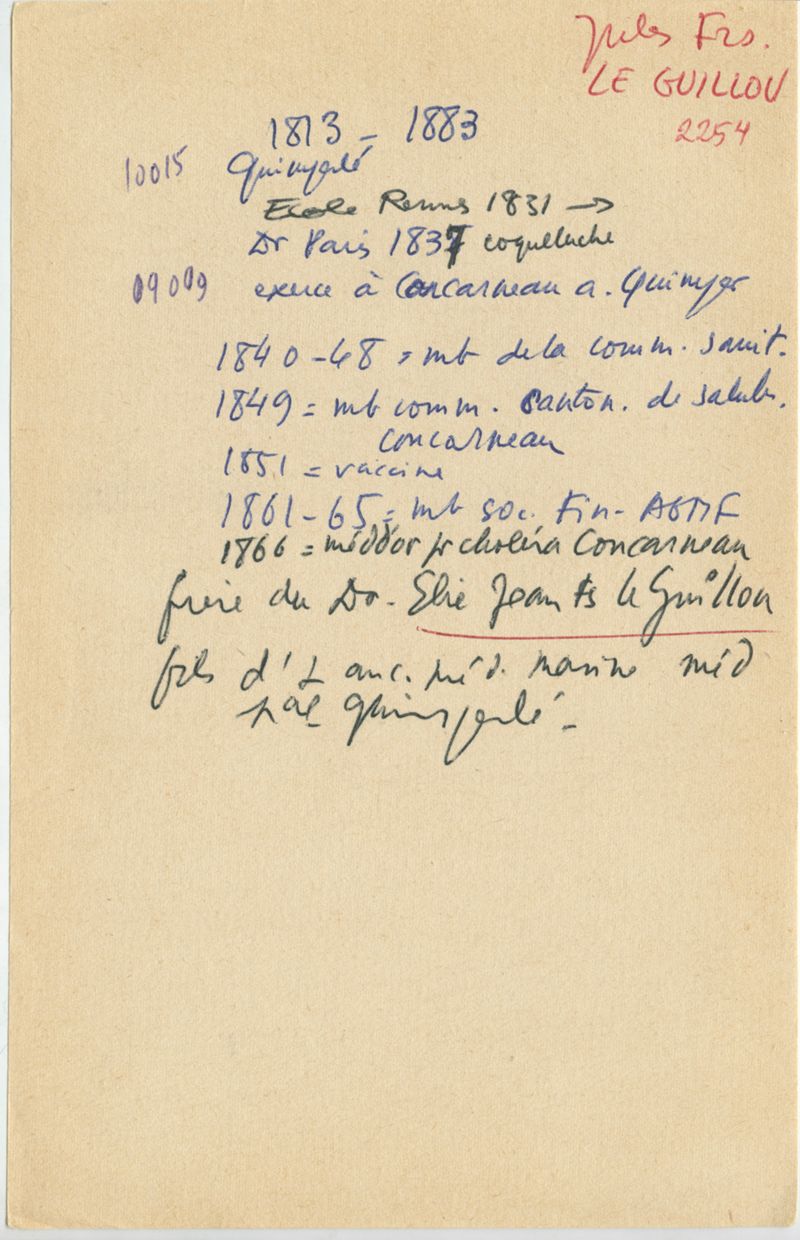 Jules Frs.
LE GUILLOU
2254
1813 - 1883
10015 Quimperlé
Ecole Rennes 1831 →
Dr Paris 1837 coqueluche
09009 exerce à Concarneau a. Quimper
1840-68 = mb de la comm. sanit.
1849 = mb comm. canton. de salub.
Concarneau
1851 = vaccine
1861-65 = mb soc. Fin. AGMF
1866 = méd d'or pr choléra Concarneau
frère du Dr. Elie Jean Fs le Guillou
fils d'1 anc. méd. marine méd
pal Quimperlé -